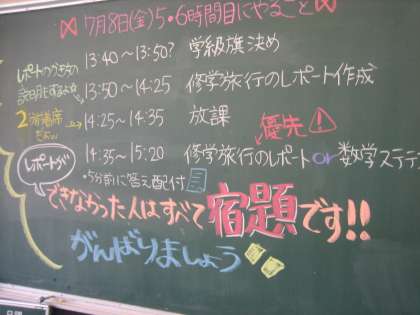 7月8日(金)5・6時間目にやること
13:40～13:50? 学級旗決め
レポートのつづきの
説明もするよ☆
13:50～14:25 修学旅行のレポート作成
14:25～14:35 放課
優先!
14:35～15:20 修学旅行のレポートor数学ステ
・5分前に答え配付
レポートが
できなかった人はすべて宿題です!!
がんばりましょう